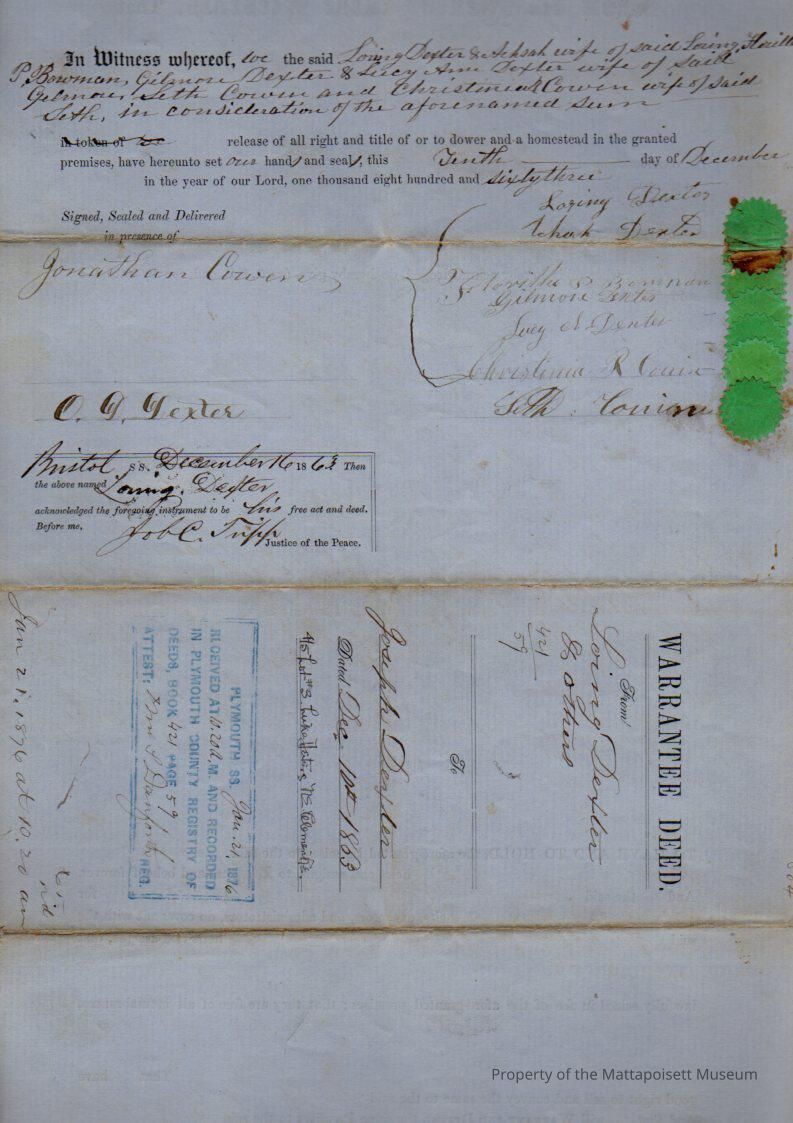 In Witness whereof, we the said Loring Dexter & Achsah wife of said Loring,
P. Bowman, Gilmore Dexter & Lucy Ann Dexter wife of said
Gilmore, Seth Cowen and Christinia Cowen wife of said
Seth, in consideration of the aforenamed sum
In token of release of all right and title of or to dower and a homestead in the granted
premises, have hereunto set our hands and seals, this Tenth day of December
in the year of our Lord, one thousand eight hundred and sixty three
Signed, Sealed and Delivered
in presence of
Loring Dexter
Dexter
Jonathan Cowen
P Bowman
Gilmore Dexter
Lucy A Dexter
Christinia R
O. D. Dexter
Seth
Bristol ss. December 16 1863 Then
the above named Loring Dexter
acknowledged the foregoing instrument to be his free act and deed.
Before me,
Job C. Tripp
Justice of the Peace.
WARRANTEE DEED.
From
Loring Dexter
& others
421
59
To
Joseph Dexter
Dated Dec. 10th 1863
4/5 Lot #3
PLYMOUTH SS. Jan. 21, 1876
RECEIVED AT 10.20 A.M. AND RECORDED
IN PLYMOUTH COUNTY REGISTRY OF
DEEDS, BOOK 421 PAGE 59
ATTEST: Wm S Danforth REG.
Jan 21, 1876 at 10.20 am
Property of the Mattapoisett Museum